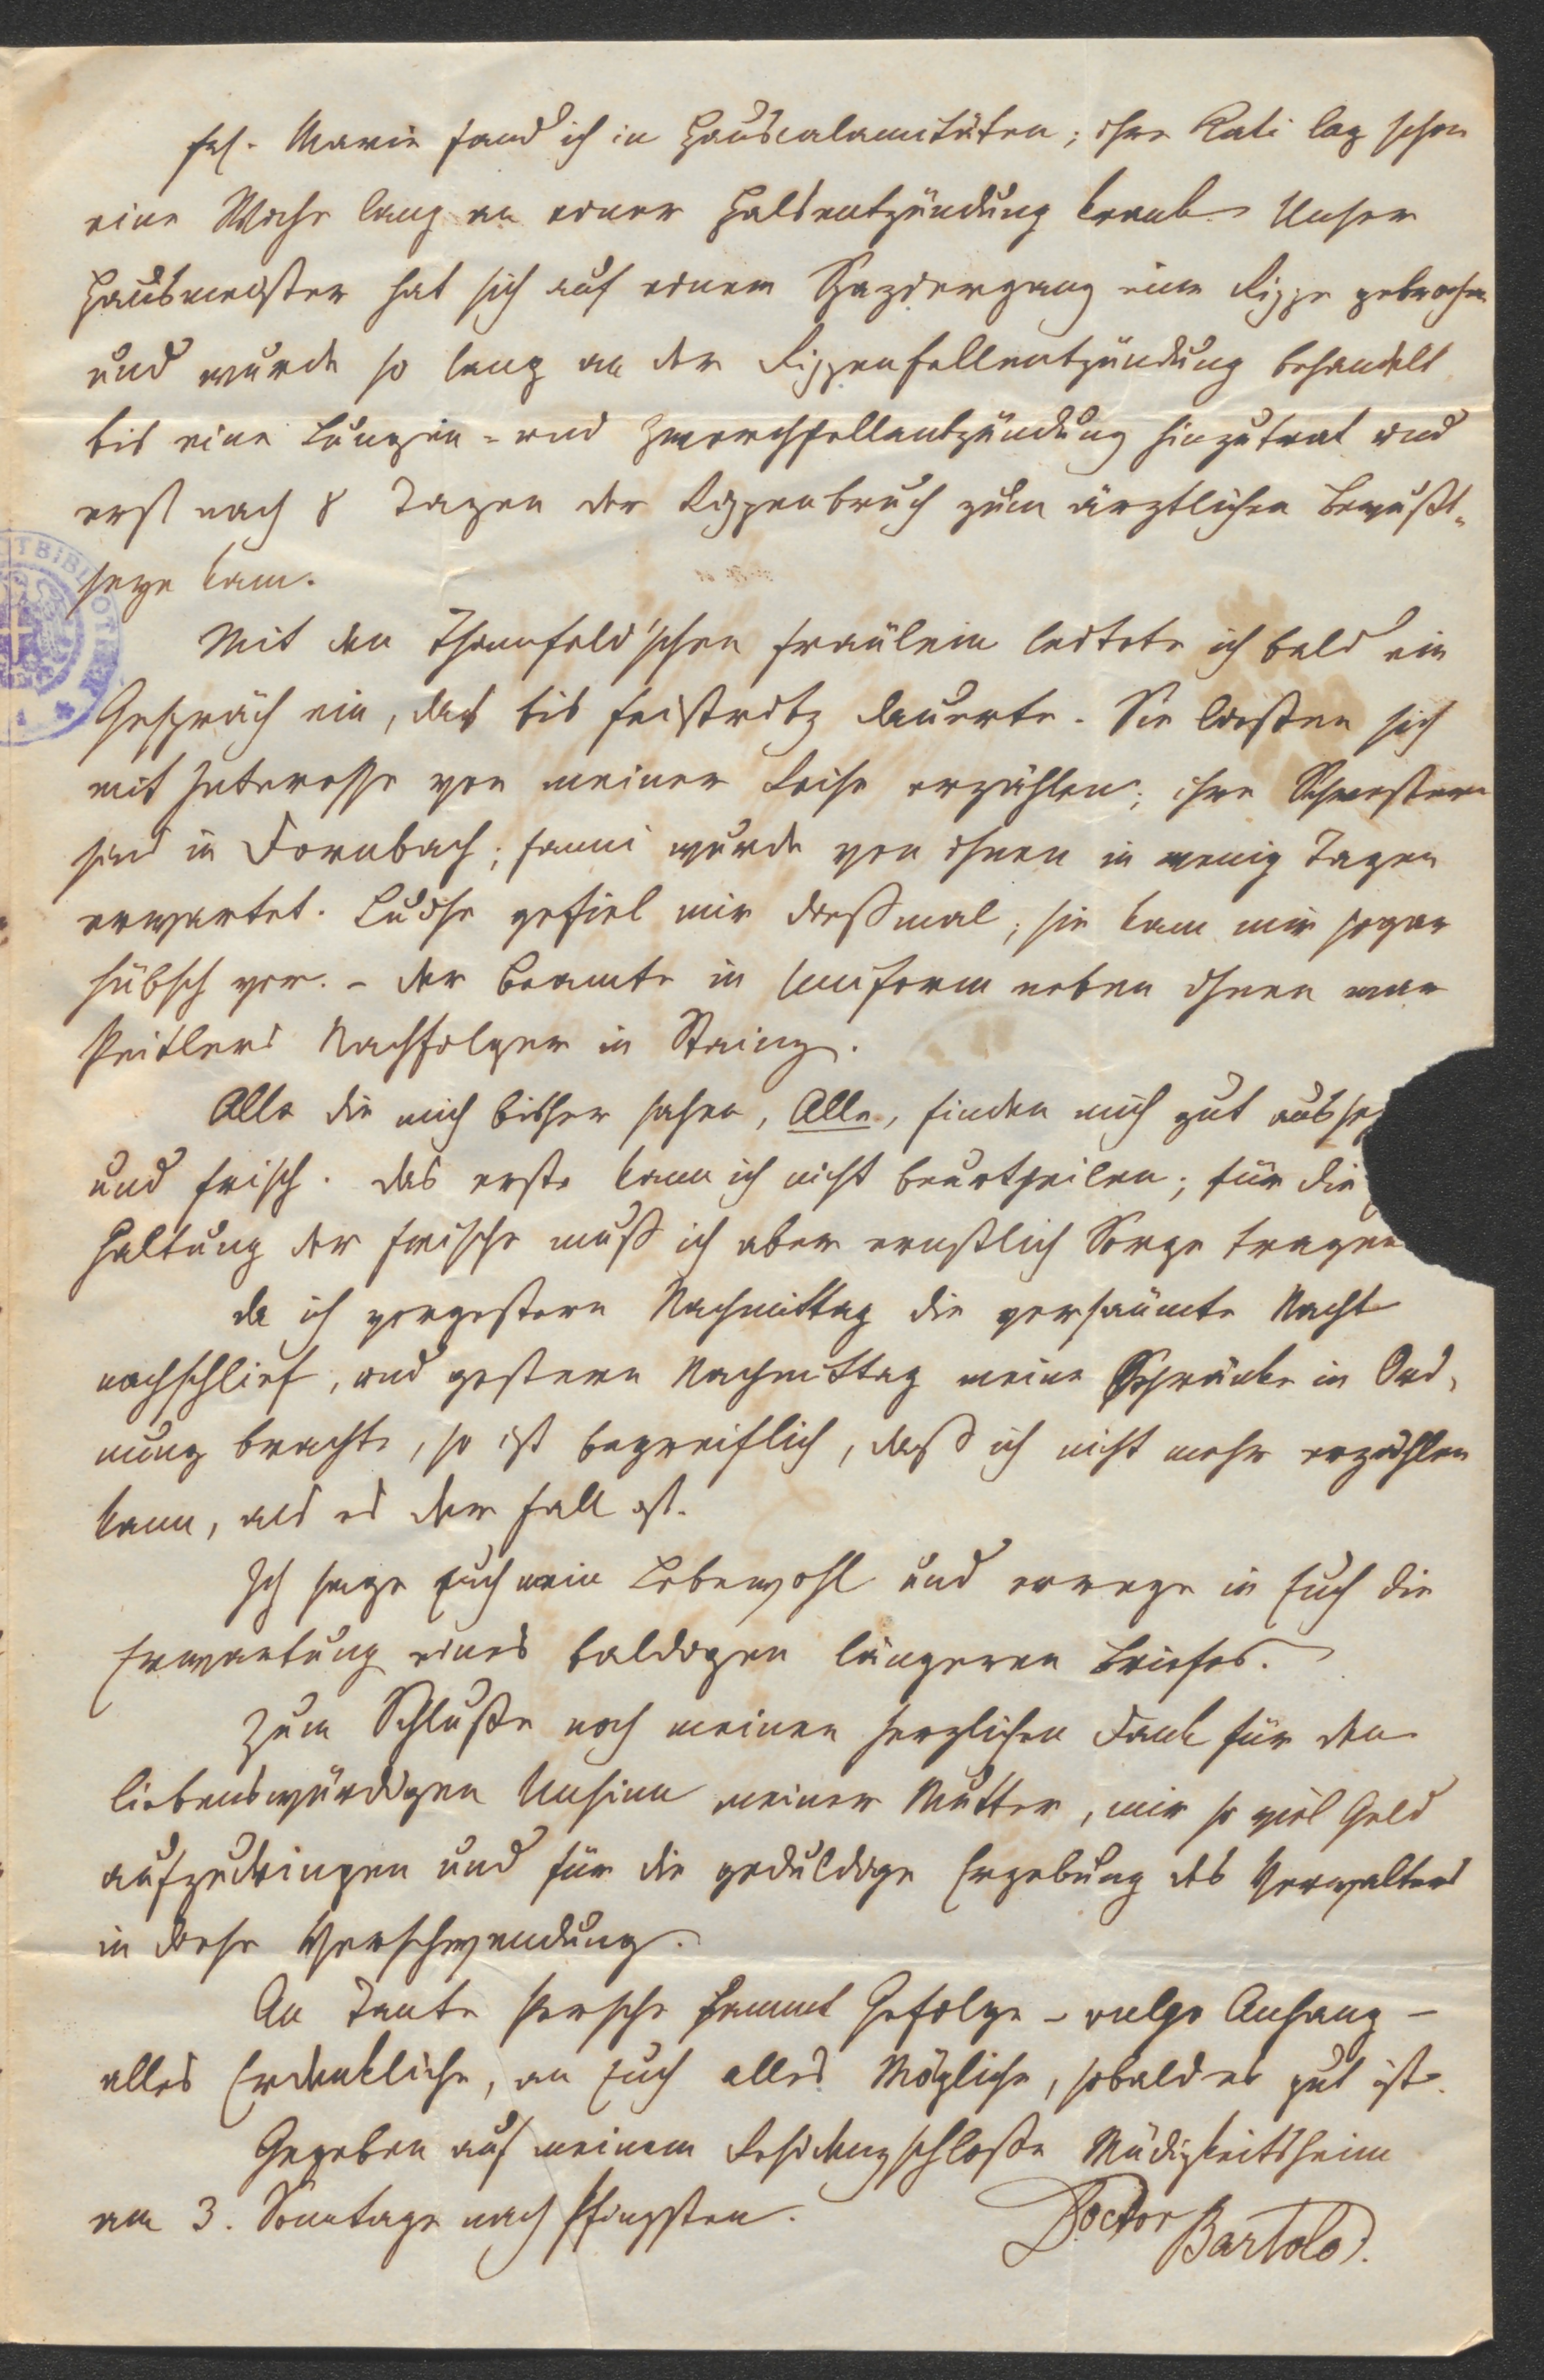 Frl. Marie fand ich in Hauscalamitäten; ihre Kati lag schon
eine Woche lang an einer Halsentzündung krank. Unser
Hausmeister hat sich auf einem Spaziergang eine Rippe gebrochen
und wurde so lang an der Rippenfellentzündung behandelt
bis eine Lungen- und Zwerchfellentzündung hinzutrat und
erst nach 8 Tagen der Rippenbruch zum ärztlichen Bewußt-
seyn kam.
Mit den Thunfeld'schen Fräulein leitete ich bald ein
Gespräch ein, das bis Feistritz dauerte. Sie ließen sich
mit Interesse von meiner Reise erzählen; ihre Schwestern
sind in Dornbach; Fanni wurde von ihnen in wenig Tagen
erwartet. Luise gefiel mir dießmal, sie kam mir sogar
hübsch vor. – Der Beamte in Uniform neben ihnen war
Peitlers Nachfolger in Stainz.
Alle die mich bisher sahen, Alle, finden mich gut ausse
und frisch. Das erste kann ich nicht beurtheilen; für die
haltung der Frische muß ich aber ernstlich Sorge tragen
Da ich vorgestern Nachmittag die versäumte Nacht
nachschlief, und gestern Nachmittag meine Schränke in Ord-
nung brachte, so ist begreiflich, daß ich nicht mehr erzählen
kann, als es der Fall ist.
Ich sage Euch mein Lebewohl und errege in Euch die
Erwartung eines baldigen längeren Briefes.
Zum Schluße noch meinen herzlichen Dank für den
liebenswürdigen Unsinn meiner Mutter, mir so viel Geld
aufzudringen und für die geduldige Ergebung des Verwalters
in diese Verschwendung.
An Tante Persche sammt Gefolge – vulgo Anhang –
alles Erdenkliche, an Euch alles Mögliche, sobald es gut ist.
Gegeben auf meinem Residenzschloße Müdigkeitsheim
am 3. Sonntage nach Pfingsten.
Doctor Bartolo.